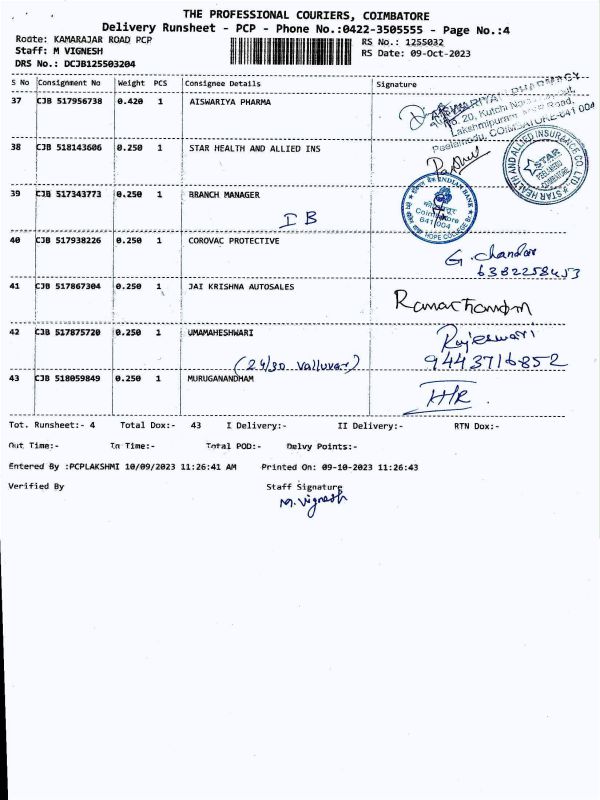 THE PROFESSIONAL COURIERS, COIMBATORE
Delivery Runsheet - PCP - Phone No.:0422-3505555 - Page No.:4
Route: KAMARAJAR ROAD PCP
RS No.: 1255032
Staff: M VIGNESH
RS Date: 09-Oct-2023
DRS No.: DCJB125503204
S No Consignment No Weight PCS Consignee Details Signature
37 CJB 517956738 0.420 1 AISWARIYA PHARMA
AISWARIYAA PHARMACY
No. 20, Kutchi
Lakshmipuram, Road,
Peelamedu, COIMBATORE-641 004
38 CJB 518143606 0.250 1 STAR HEALTH AND ALLIED INS
STAR HEALTH AND ALLIED INSURANCE CO. LTD.
STAR
PEELAMEDU
COIMBATORE
39 CJB 517343773 0.250 1 BRANCH MANAGER
IB
INDIAN BANK
Coimbatore
641 004
HOPE COLLEGE Br.
40 CJB 517938226 0.250 1 COROVAC PROTECTIVE
G. chandar
6382258453
41 CJB 517867304 0.250 1 JAI KRISHNA AUTOSALES
42 CJB 517875720 0.250 1 UMAMAHESHWARI
Rajeswari
(24/30 Valluvar) 9443716852
43 CJB 518059849 0.250 1 MURUGANANDHAM
Tot. Runsheet:- 4 Total Dox:- 43 I Delivery:- II Delivery:- RTN Dox:-
Out Time:- In Time:- Total POD:- Delvy Points:-
Entered By :PCPLAKSHMI 10/09/2023 11:26:41 AM Printed On: 09-10-2023 11:26:43
Verified By Staff Signature
M. Vignesh